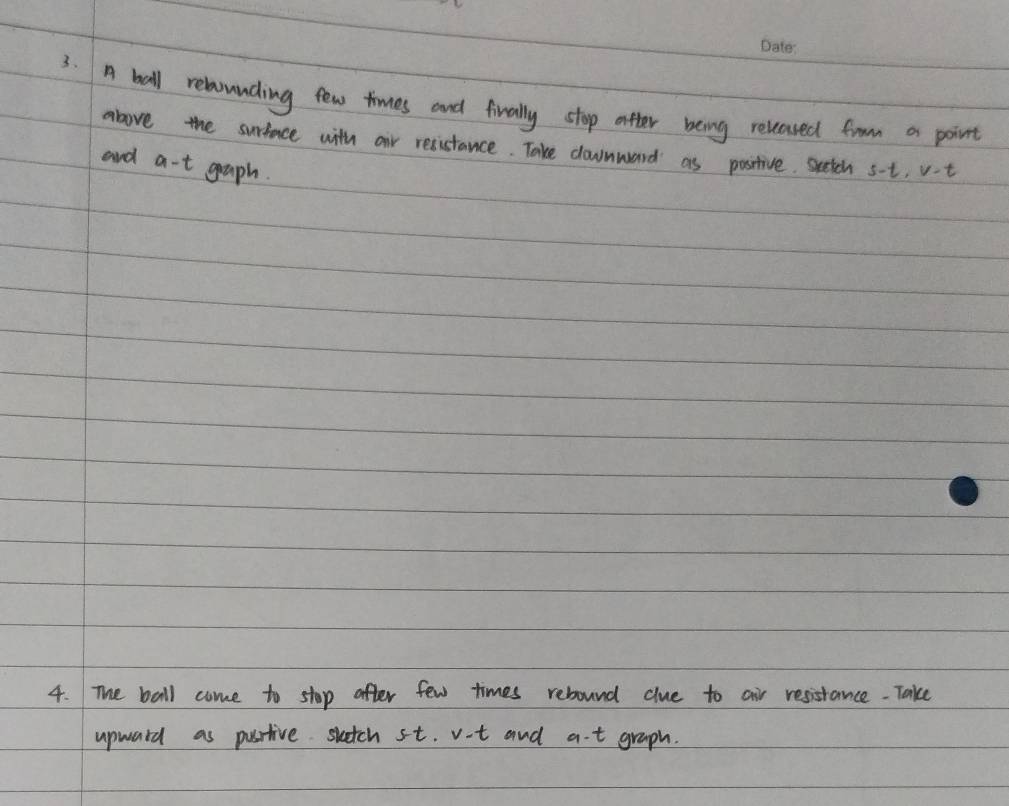 Date:
3. A ball rebounding few times and finally stop after being released from a point
above the surface with air resistance. Take downward as positive. Sketch s-t, v-t
and a-t graph.
4. The ball come to stop after few times rebound due to air resistance. Take
upward as positive. sketch s-t. v-t and a-t graph.